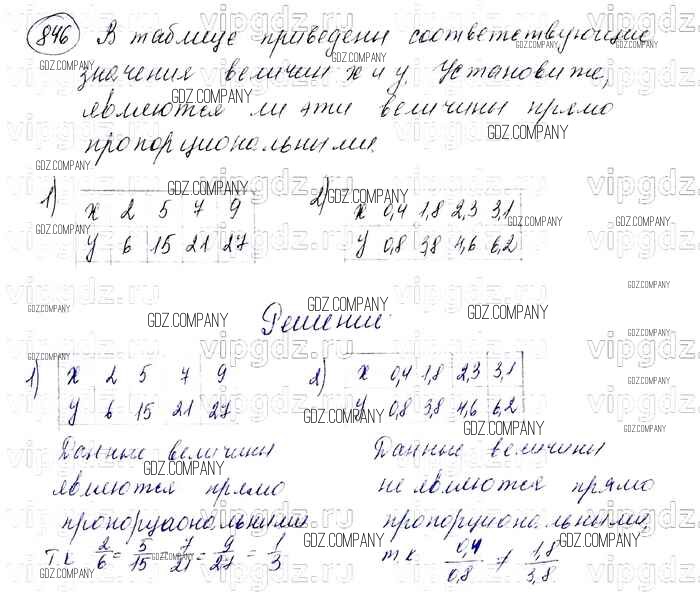 846 В таблице приведены соответствующие
значения величин x и y. Установите,
являются ли эти величины прямо
пропорциональными.
1) x 2 5 7 9
y 6 15 21 27
2) x 0,4 1,8 2,3 3,1
y 0,8 3,8 4,6 6,2
Решение:
1) x 2 5 7 9
y 6 15 21 27
Данные величины
являются прямо
пропорцаональными
т.к 2/6 = 5/15 = 7/21 = 9/27 = 1/3
2) x 0,4 1,8 2,3 3,1
y 0,8 3,8 4,6 6,2
Данные величины
не являются прямо
пропорциональными,
т.к. 0,4/0,8 ≠ 1,8/3,8
vipgdz.ru
GDZ.COMPANY